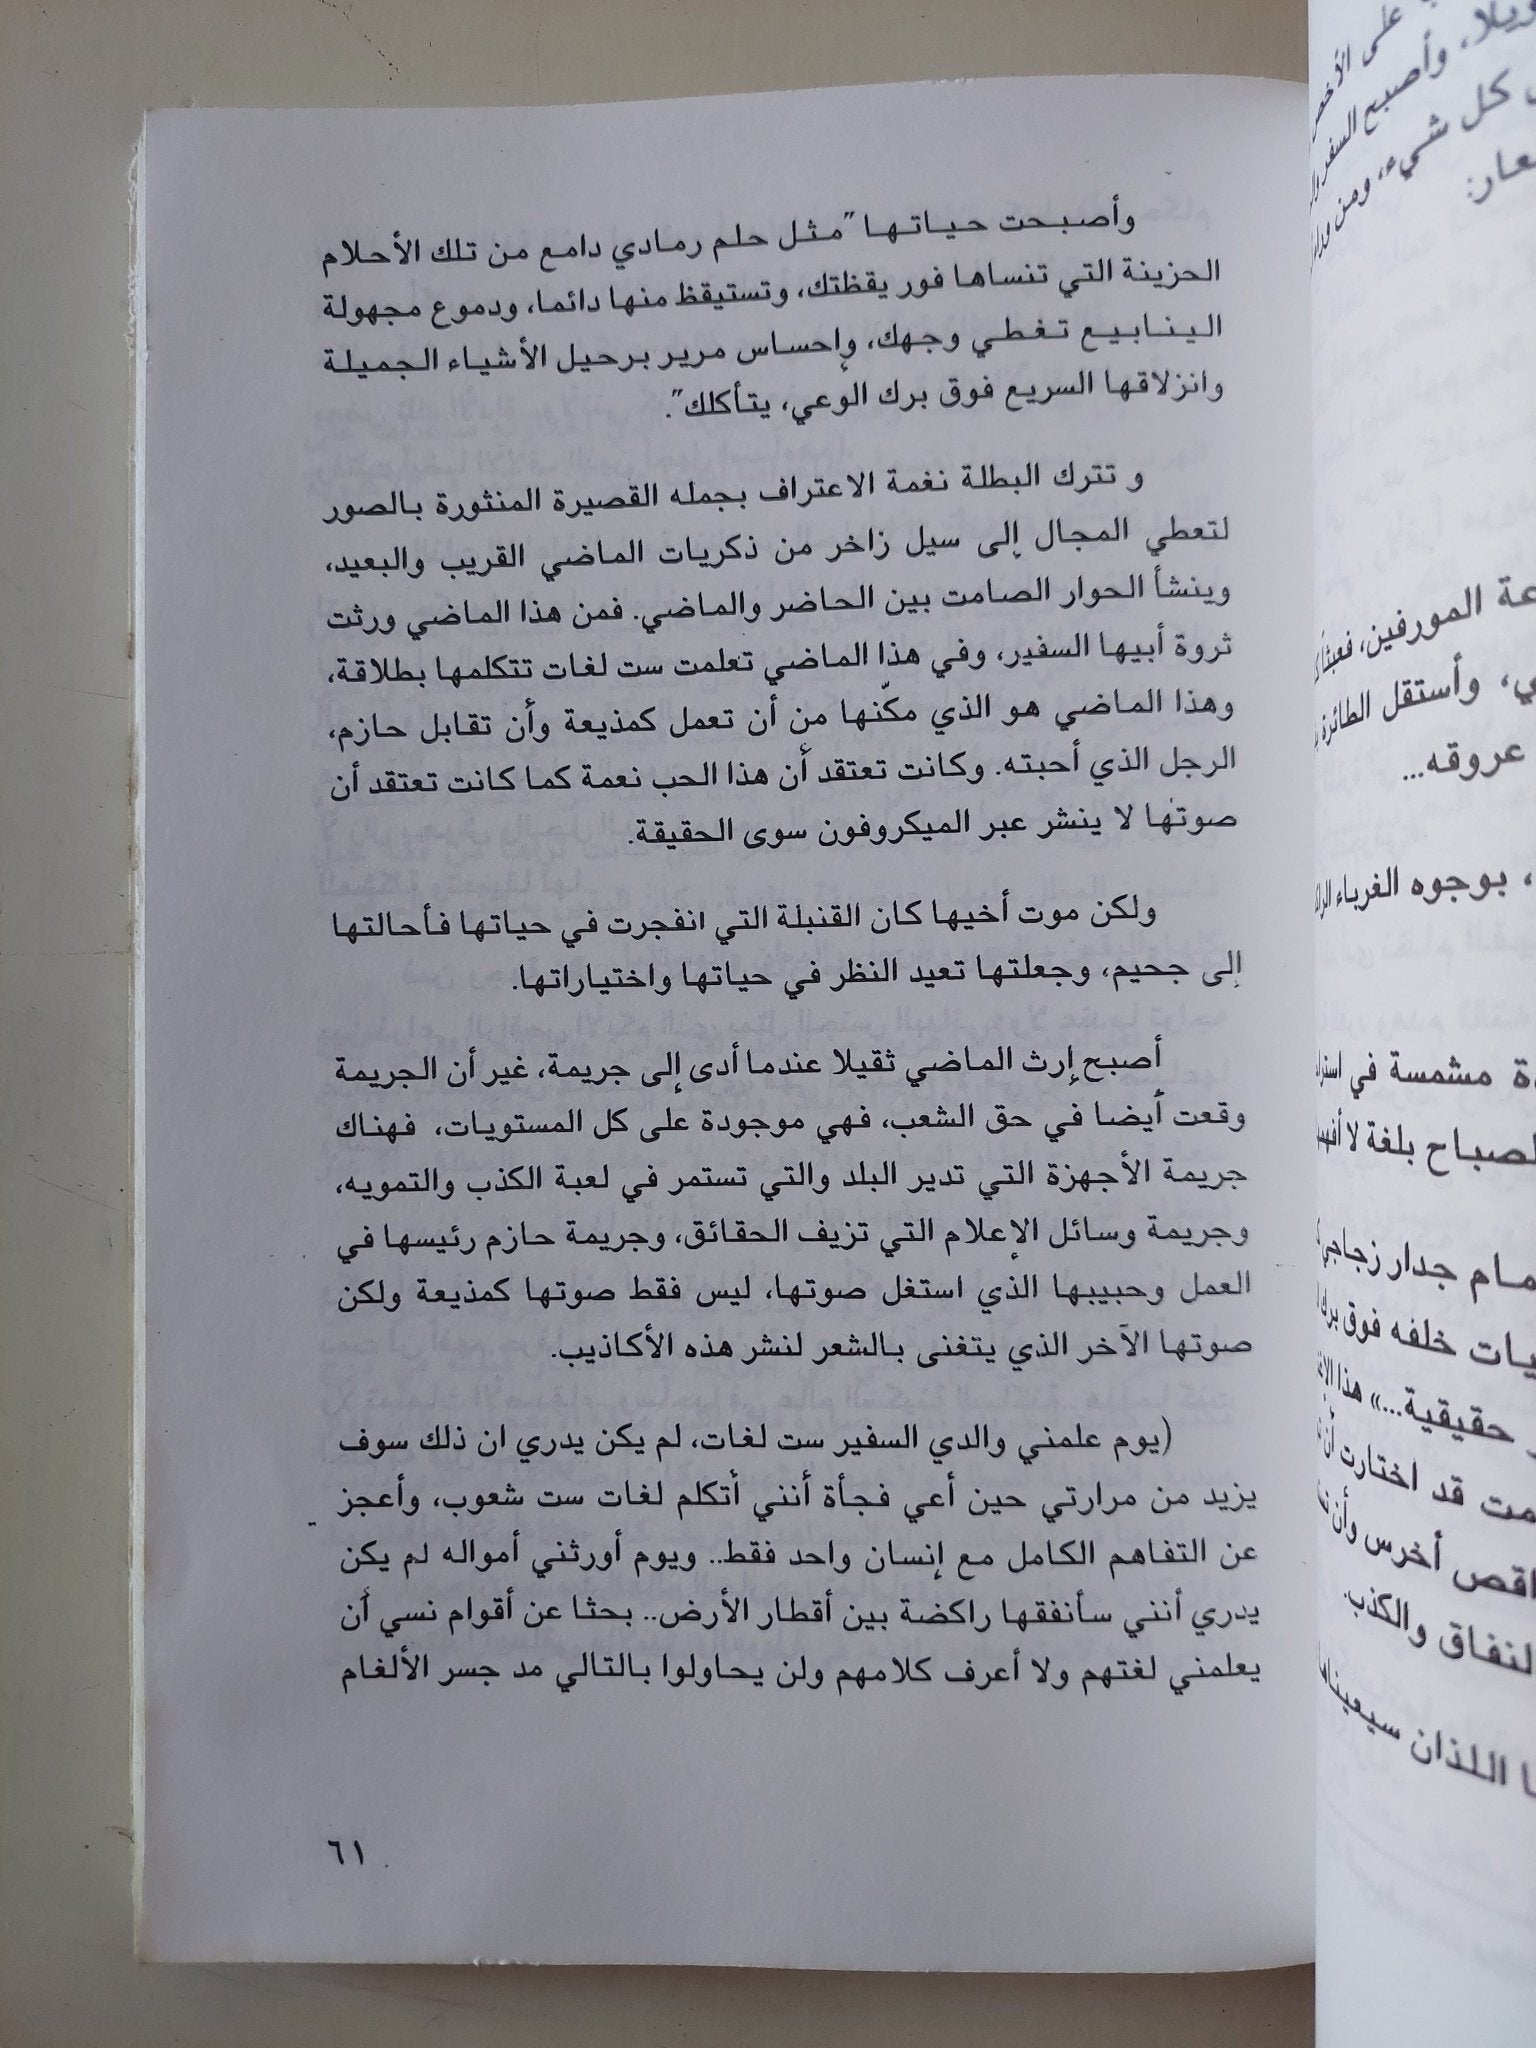 وأصبحت حياتها "مثل حلم رمادي دامع من تلك الأحلام
الحزينة التي تنساها فور يقظتك، وتستيقظ منها دائما، ودموع مجهولة
الينابيع تغطي وجهك، وإحساس مرير برحيل الأشياء الجميلة
وانزلاقها السريع فوق برك الوعي، يتأكلك".
و تترك البطلة نغمة الاعتراف بجمله القصيرة المنثورة بالصور
لتعطي المجال إلى سيل زاخر من ذكريات الماضي القريب والبعيد،
وينشأ الحوار الصامت بين الحاضر والماضي. فمن هذا الماضي ورثت
ثروة أبيها السفير، وفي هذا الماضي تعلمت ست لغات تتكلمها بطلاقة،
وهذا الماضي هو الذي مكّنها من أن تعمل كمذيعة وأن تقابل حازم،
الرجل الذي أحبته. وكانت تعتقد أن هذا الحب نعمة كما كانت تعتقد أن
صوتها لا ينشر عبر الميكروفون سوى الحقيقة.
ولكن موت أخيها كان القنبلة التي انفجرت في حياتها فأحالتها
إلى جحيم، وجعلتها تعيد النظر في حياتها واختياراتها.
أصبح إرث الماضي ثقيلا عندما أدى إلى جريمة، غير أن الجريمة
وقعت أيضا في حق الشعب، فهي موجودة على كل المستويات، فهناك
جريمة الأجهزة التي تدير البلد والتي تستمر في لعبة الكذب والتمويه،
وجريمة وسائل الإعلام التي تزيف الحقائق، وجريمة حازم رئيسها في
العمل وحبيبها الذي استغل صوتها، ليس فقط صوتها كمذيعة ولكن
صوتها الآخر الذي يتغنى بالشعر لنشر هذه الأكاذيب.
(يوم علمني والدي السفير ست لغات، لم يكن يدري ان ذلك سوف
يزيد من مرارتي حين أعي فجأة أنني أتكلم لغات ست شعوب، وأعجز
عن التفاهم الكامل مع إنسان واحد فقط.. ويوم أورثني أمواله لم يكن
يدري أنني سأنفقها راكضة بين أقطار الأرض.. بحثا عن أقوام نسي أن
يعلمني لغتهم ولا أعرف كلامهم ولن يحاولوا بالتالي مد جسر الألغام
٦١
على
وأصبح السفر
كل شيء، ومن
المورفين،
وأستقل الطائرة
عروقه...
، بوجوه الغرباء
مشمسة في
بلغة لا
جدار زجاجي
خلفه فوق
حقيقية...» هذا
قد اختارت أن
أخرس وأن
والكذب.
اللذان